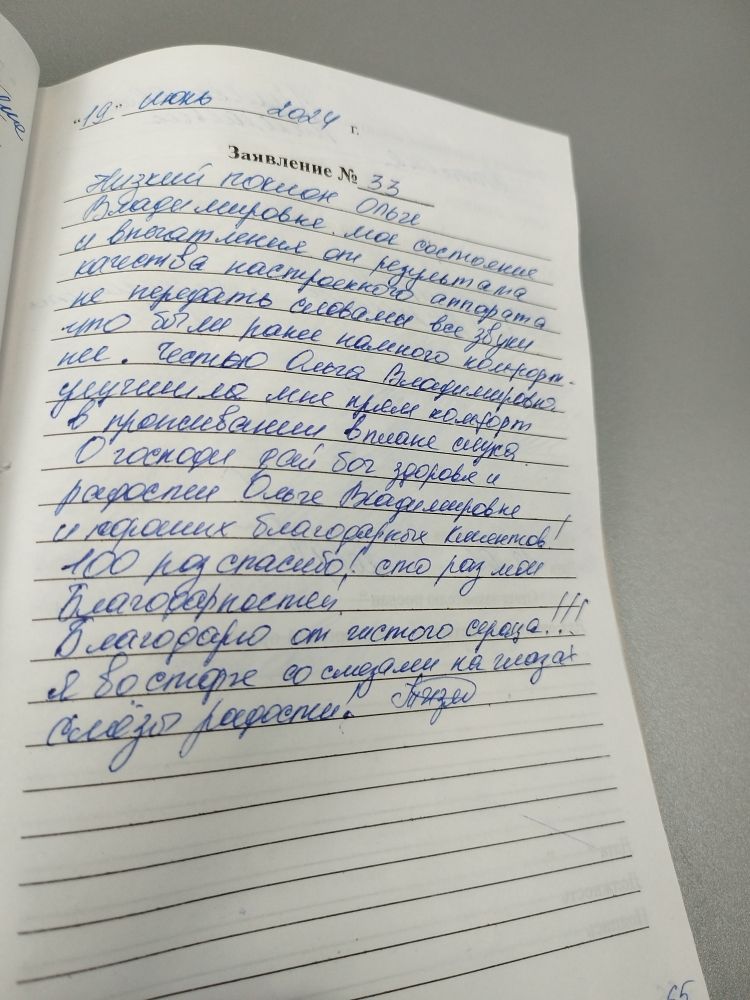 "19" июнь 2024 г.
Заявление № 33
Низкий поклон Ольге
Владимировне. мое состояние
и впечатления от результата
качества настроенного аппарата
не передать словами все звуки
что были ранее намного комфорт-
нее. Честью Ольга Владимировна
улучшила мне прям комфорт
в проживании в плане слуха.
О господи дай бог здоровья и
радости Ольге Владимировне
и хороших благодарных клиентов!
100 раз спасибо! сто раз мои
Благодарностей
Благодарю от чистого сердца!!!
Я восторге со слезами на глазах
слёзы радости!
65